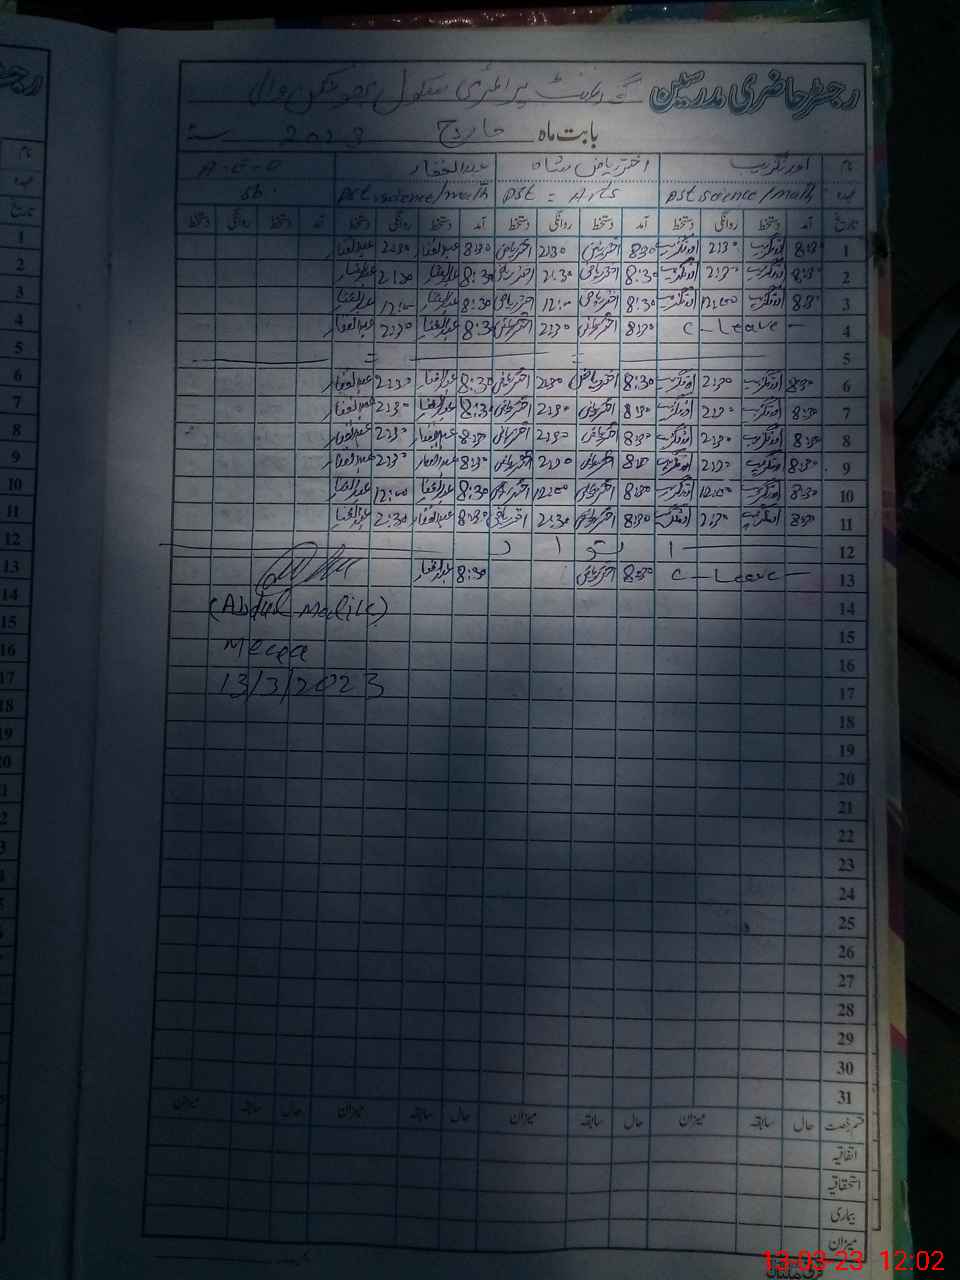 رجسٹر حاضری مدرسین گورنمنٹ پرائمری سکول
بابت ماہ مارچ 2023 سنہ
نام اورنگزیب اختر ریاض شاہ عبدالغفار A-E-O
عہدہ Pst science/math Pst = Arts Pst science/math
تاریخ آمد دستخط روانگی دستخط آمد دستخط روانگی دستخط آمد دستخط روانگی دستخط آمد دستخط روانگی دستخط
1 8:30 اورنگزیب 2:30 اورنگزیب 8:30 اختر ریاض 2:30 اختر ریاض 8:30 عبدالغفار 2:30 عبدالغفار
2 8:30 اورنگزیب 2:30 اورنگزیب 8:30 اختر ریاض 2:30 اختر ریاض 8:30 عبدالغفار 2:30 عبدالغفار
3 8:30 اورنگزیب 12:00 اورنگزیب 8:30 اختر ریاض 12:00 اختر ریاض 8:30 عبدالغفار 12:00 عبدالغفار
4 C-Leave- 8:30 اختر ریاض 2:30 اختر ریاض 8:30 عبدالغفار 2:30 عبدالغفار
5 = =
6 8:30 اورنگزیب 2:30 اورنگزیب 8:30 اختر ریاض 2:30 اختر ریاض 8:30 عبدالغفار 2:30 عبدالغفار
7 8:30 اورنگزیب 2:30 اورنگزیب 8:30 اختر ریاض 2:30 اختر ریاض 8:30 عبدالغفار 2:30 عبدالغفار
8 8:30 اورنگزیب 2:30 اورنگزیب 8:30 اختر ریاض 2:30 اختر ریاض 8:30 عبدالغفار 2:30 عبدالغفار
9 8:30 اورنگزیب 2:30 اورنگزیب 8:30 اختر ریاض 2:30 اختر ریاض 8:30 عبدالغفار 2:30 عبدالغفار
10 8:30 اورنگزیب 12:00 اورنگزیب 8:30 اختر ریاض 12:00 اختر ریاض 8:30 عبدالغفار 12:00 عبدالغفار
11 8:30 اورنگزیب 2:30 اورنگزیب 8:30 اختر ریاض 2:30 اختر ریاض 8:30 عبدالغفار 2:30 عبدالغفار
12 ا تو ا ر
13 C-Leave- 8:30 اختر ریاض 8:30 عبدالغفار
14 (Abdul Malik)
15
16 Meqa
17 13/3/2023
18
19
20
21
22
23
24
25
26
27
28
29
30
31
قسم رخصت حال سابقہ میزان حال سابقہ میزان حال سابقہ میزان حال سابقہ میزان
اتفاقیہ
استحقاقیہ
بیماری
میزان
13-03-23 12:02